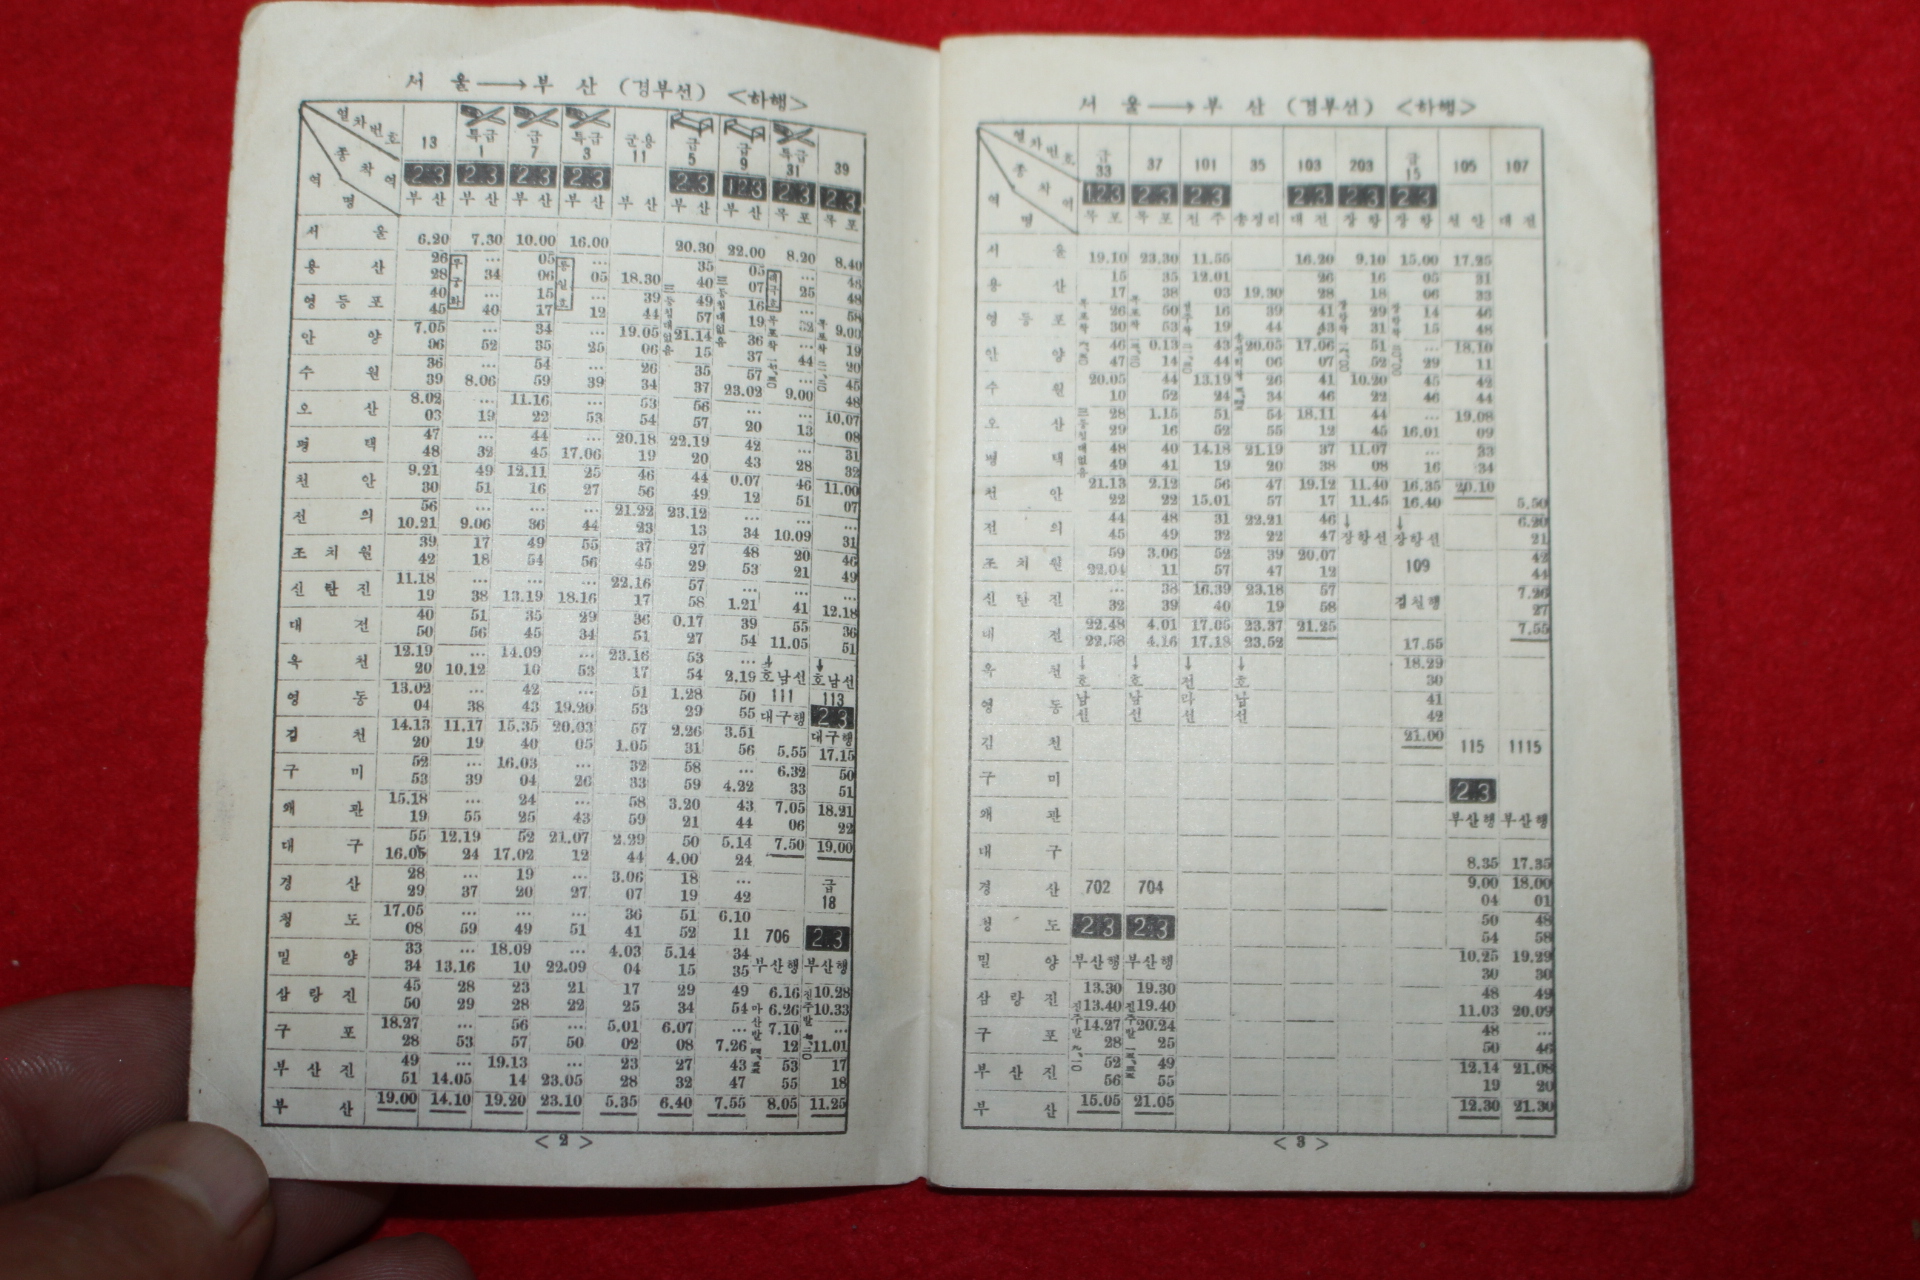 서 울 → 부 산 (경부선) <하행>
열차번호 13 특급 1 급 7 특급 3 군용 11 급 5 급 9 특급 31 39
2.3 2.3 2.3 2.3 2.3 1 2 3 2.3 2.3
종착역 부산 부산 부산 부산 부산 부산 부산 목포 목포
역명
서 울 6.20 7.30 10.00 16.00 20.30 22.00 8.20 8.40
용 산 26 … 05 35 05 … 48
28 34 06 05 18.30 40 07 25 48
영 등 포 40 … 15 … 39 49 16 … 58
45 40 17 12 44 57 19 32 9.00
안 양 7.05 … 34 … 19.05 21.14 36 … 19
06 52 35 25 06 15 37 44 20
수 원 36 … 54 … 26 35 57 … 45
39 8.06 59 39 34 37 23.02 9.00 48
오 산 8.02 … 11.16 … 53 56 … … 10.07
03 19 22 53 54 57 20 13 08
평 택 47 … 44 … 20.18 22.19 42 … 31
48 32 45 17.06 19 20 43 28 32
천 안 9.21 49 12.11 25 46 44 0.07 46 11.00
30 51 16 27 56 49 12 51 07
전 의 56 … … … 21.22 23.12 … … …
10.21 9.06 36 44 23 13 34 10.09 31
조 치 원 39 17 49 55 37 27 48 20 46
42 18 54 56 45 29 53 21 49
신 탄 진 11.18 … … … 22.16 57 … … …
19 38 13.19 18.16 17 58 1.21 41 12.18
대 전 40 51 35 29 36 0.17 39 55 36
50 56 45 34 51 27 54 11.05 51
옥 천 12.19 … 14.09 … 23.16 53 … ↓ ↓
20 10.12 10 53 17 54 2.19 호남선 호남선
영 동 13.02 … 42 … 51 1.28 50 111 113
04 38 43 19.20 53 29 55 대구행 2 3
김 천 14.13 11.17 15.35 20.03 57 2.26 3.51 대구행
20 19 40 05 1.05 31 56 5.55 17.15
구 미 52 … 16.03 … 32 58 … 6.32 50
53 39 04 26 33 59 4.22 33 51
왜 관 15.18 … 24 … 58 3.20 43 7.05 18.21
19 55 25 43 59 21 44 06 22
대 구 55 12.19 52 21.07 2.29 50 5.14 7.50 19.00
16.05 24 17.02 12 44 4.00 24
경 산 28 … 19 … 3.06 18 … 급
29 37 20 27 07 19 42 18
청 도 17.05 … … … 36 51 6.10
08 59 49 51 41 52 11 706 2.3
밀 양 33 … 18.09 … 4.03 5.14 34 부산행 부산행
34 13.16 10 22.09 04 15 35
삼 랑 진 45 28 23 21 17 29 49 6.16 10.28
50 29 28 22 25 34 54 6.26 10.33
구 포 18.27 … 56 … 5.01 6.07 … 7.10 …
28 53 57 50 02 08 7.26 12 11.01
부 산 진 49 … 19.13 … 23 27 43 53 17
51 14.05 14 23.05 28 32 47 55 18
부 산 19.00 14.10 19.20 23.10 5.35 6.40 7.55 8.05 11.25
< 2 >
서 울 → 부 산 (경부선) <하행>
열차번호 급 33 37 101 35 103 203 급 15 105 107
1.2.3 2 3 2 3 2.3 2.3 2 3
종착역 목포 목포 전주 대전 장항 장항 천안 대전
역명
서 울 19.10 23.30 11.55 16.20 9.10 15.00 17.25
용 산 15 35 12.01 26 16 05 31
17 38 03 19.30 28 18 06 33
영 등 포 26 50 16 39 41 29 14 46
30 53 19 44 43 31 15 48
안 양 46 0.13 43 20.05 17.06 51 … 18.10
47 14 44 06 07 52 29 11
수 원 20.05 44 13.19 26 41 10.20 45 42
10 52 24 34 46 22 46 44
오 산 28 1.15 51 54 18.11 44 … 19.08
29 16 52 55 12 45 16.01 09
평 택 48 40 14.18 21.19 37 11.07 … 33
49 41 19 20 38 08 16 34
천 안 21.13 2.12 56 47 19.12 11.40 16.35 20.10
22 22 15.01 57 17 11.45 16.40 5.50
전 의 44 48 31 22.21 46 ↓ ↓ 6.20
45 49 32 22 47 장항선 장항선 21
조 치 원 59 3.06 52 39 20.07 109 42
22.04 11 57 47 12 44
신 탄 진 … 38 16.39 23.18 57 김천행 7.26
32 39 40 19 58 27
대 전 22.48 4.01 17.05 23.37 21.25 7.55
22.58 4.16 17.18 23.52 17.55
옥 천 ↓ ↓ ↓ ↓ 18.29
호남선 호남선 전라선 호남선 30
영 동 41
42
김 천 21.00 115 1115
구 미 2.3
왜 관 부산행 부산행
대 구 8.35 17.35
경 산 702 704 9.00 18.00
04 01
청 도 2 3 2.3 50 48
54 58
밀 양 부산행 부산행 10.25 19.29
30 30
삼 랑 진 13.30 19.30 48 49
13.40 19.40 11.03 20.09
구 포 14.27 20.24 48 …
28 25 50 46
부 산 진 52 49 12.14 21.08
56 55 19 20
부 산 15.05 21.05 12.30 21.30
< 3 >